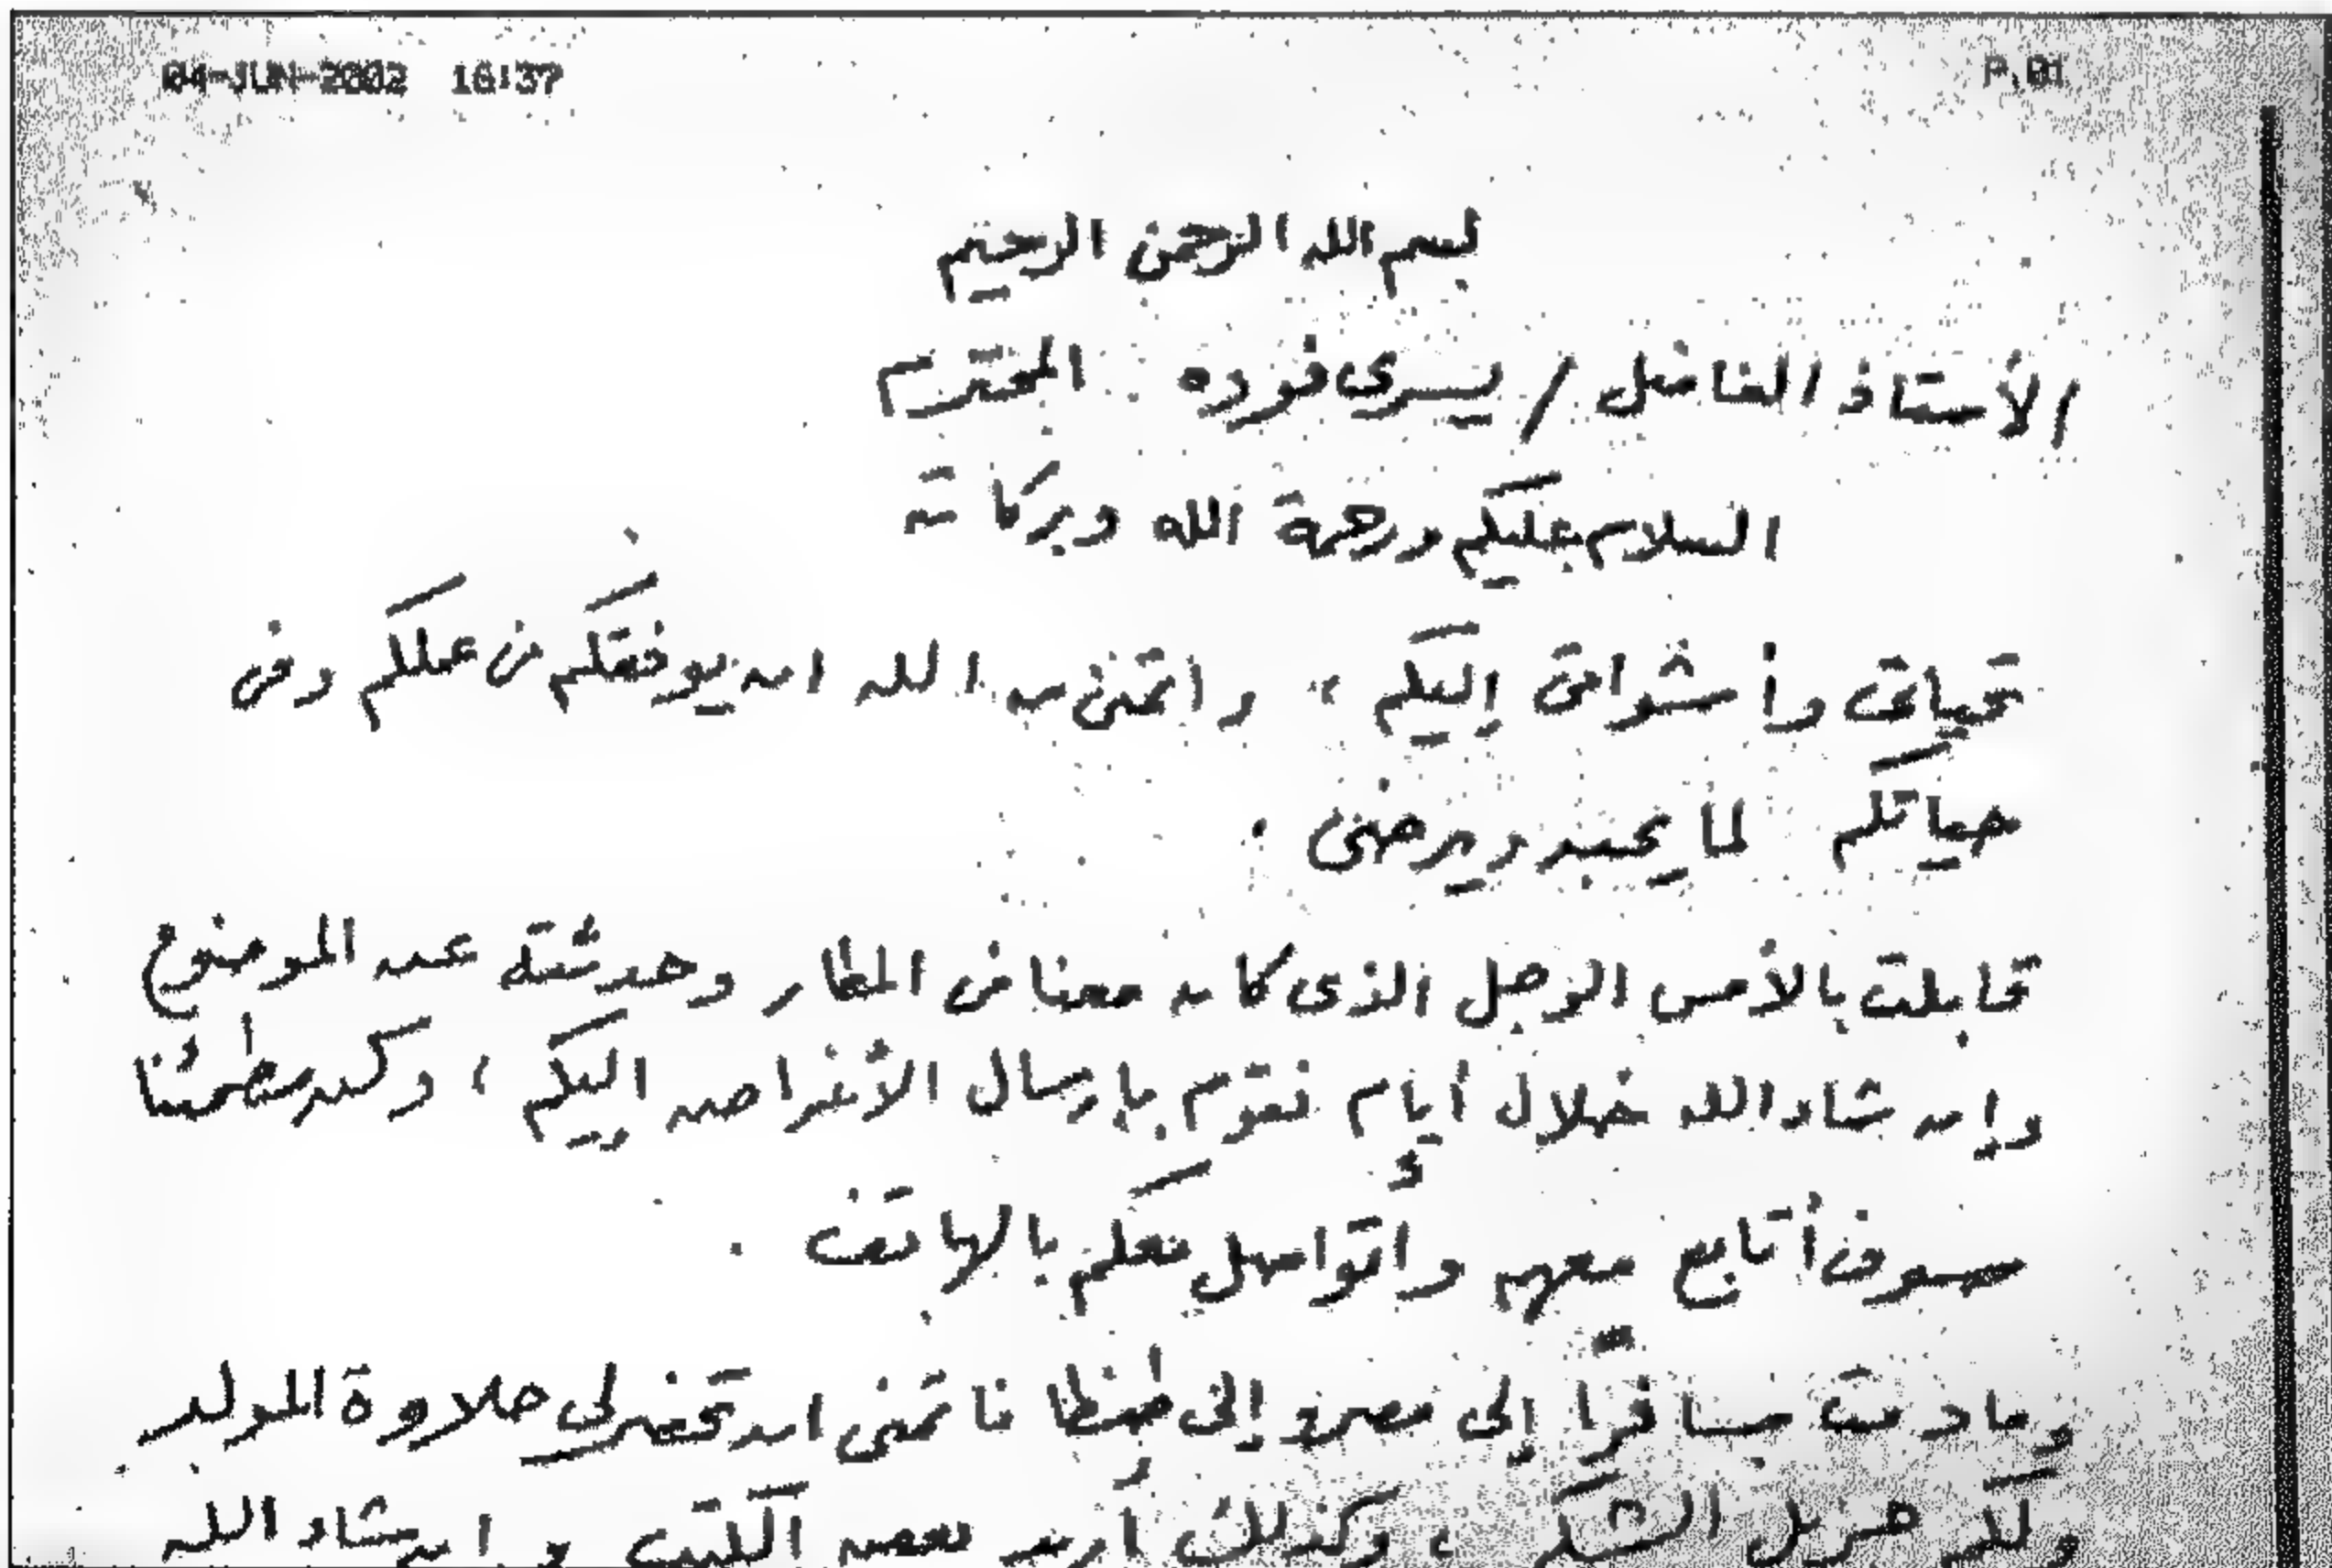 04-JUN-2002 16:37 P.01
بسم الله الرحمن الرحيم
الأستاذ الفاضل / يسرى فوده المحترم
السلام عليكم ورحمة الله وبركاته
تحياتى وأشواقى إليكم ، واتمنى من الله ان يوفقكم فى عملكم وفى
حياتكم لما يحبه ويرضى .
قابلت بالأمس الرجل الذى كان معنا فى المطار وحدثته عن الموضوع
وإن شاء الله خلال أيام نقوم بإرسال الأقراص اليكم ، وكن مطمئنا
سوف أتابع معهم وأتواصل معكم بالهاتف .
وما دمت مسافرًا إلى مصر وإلى طنطا فاتمنى ان تحضر لى حلاوة المولد
ولك جزيل الشكر ، وكذلك أريد بعض الكتب و ان شاء الله